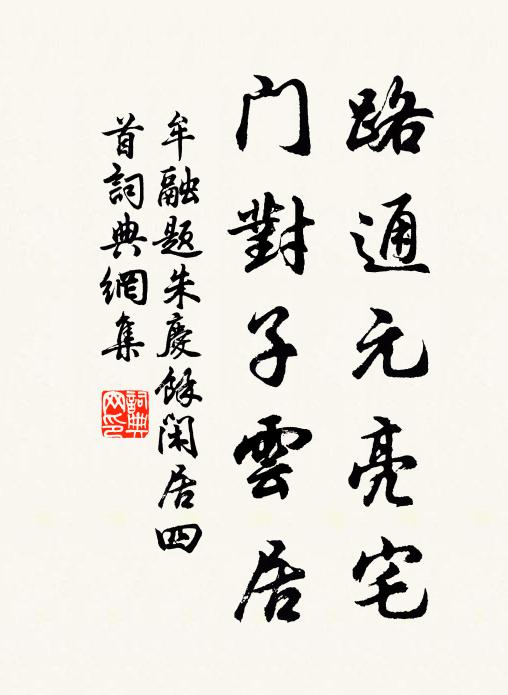 路通元亮宅
门對子雲居
牟融题朱慶餘閑居四
首詞典網集
詞典
网印